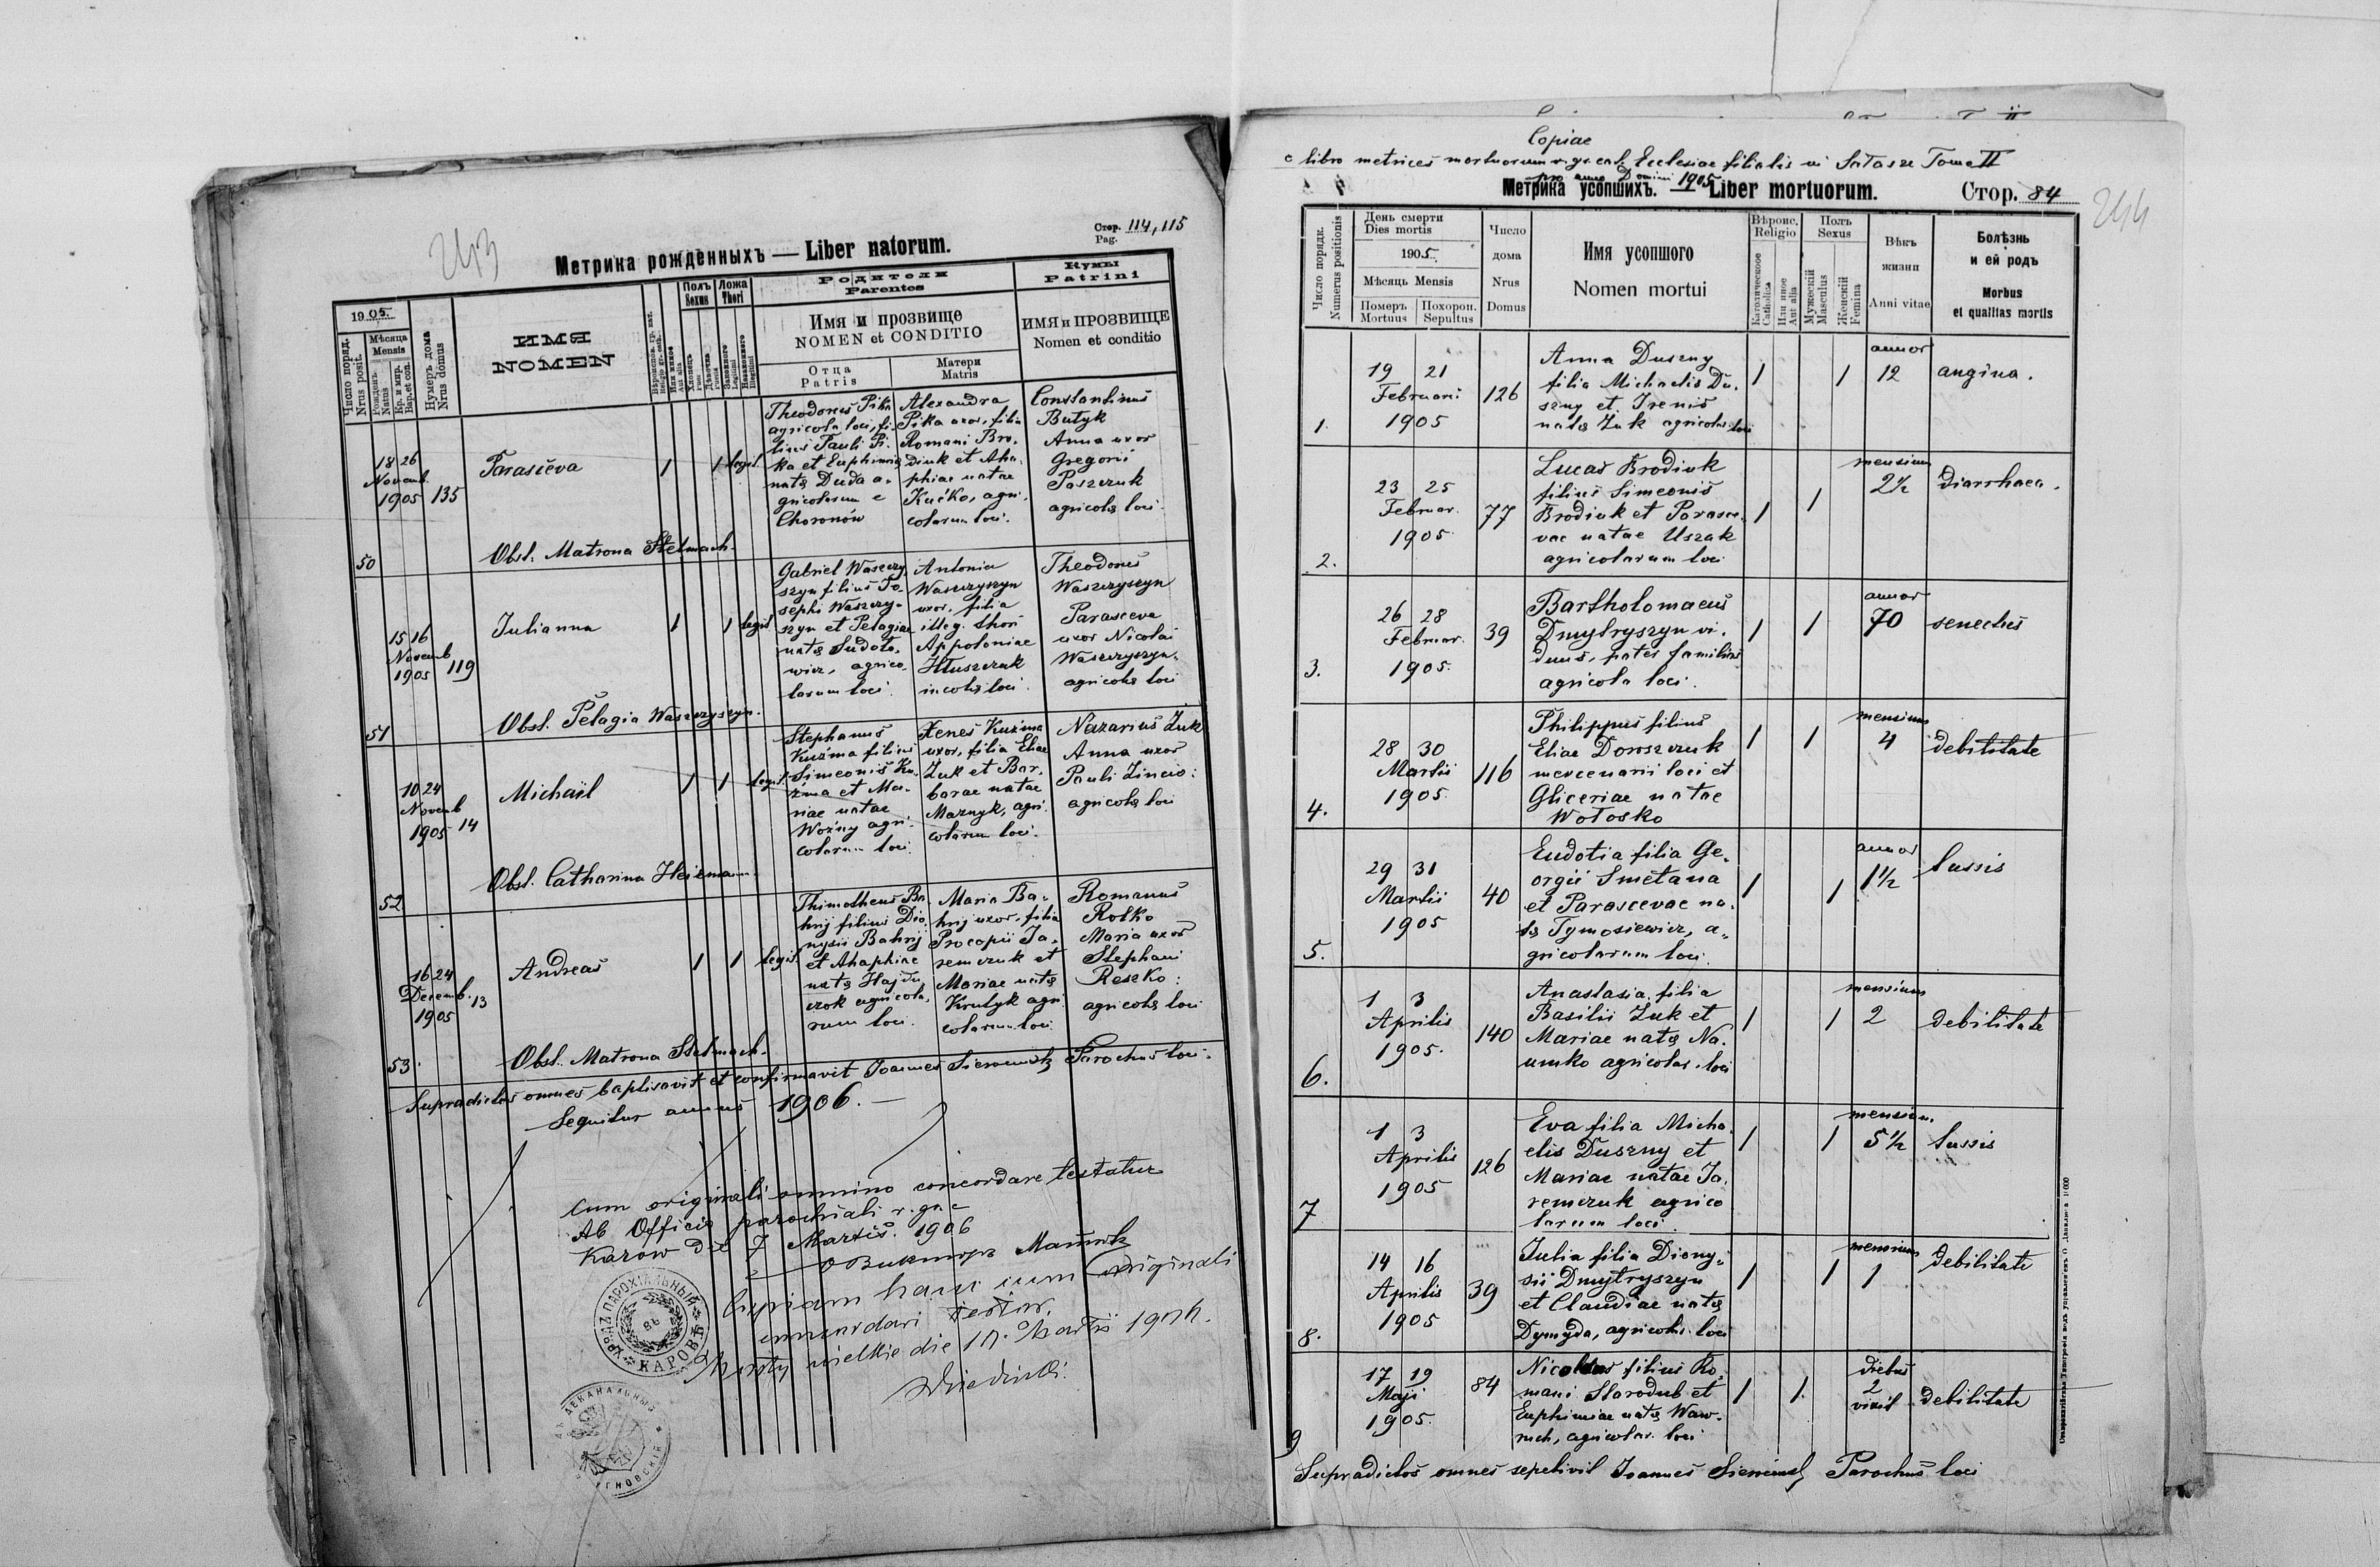 243
Стор. 114, 115
Pag.
Метрика рожденныхъ — Liber natorum.
1905.
Число поряд.
Nrus posit.
Мѣсяца
Mensis
Рожденъ
Natus
Кр. и мир.
Bap. et con.
Нумеръ дома
Nrus domus
ИМЯ
NOMEN
Полъ
Sexus
Ложа
Thori
Родители
Parentes
Имя и прозвище
NOMEN et CONDITIO
Отца
Patris
Матери
Matris
Кумы
Patrini
ИМЯ и ПРОЗВИЩЕ
Nomen et conditio
50
18 26
Novemb.
1905
135
Parasceva
1 1 legit.
Theodorus Pika
agricola loci, fi-
lius Pauli Pi-
ka et Euphimiæ
natæ Duda a-
gricolarum e
Choronów
Alexandra
Pika uxor, filia
Romani Bro-
diuk et Aha-
phiae natae
Kućko, agri-
colarum loci.
Constantinus
Butyk
Anna uxor
Gregorii
Paszczuk
agricolæ loci.
Obst. Matrona Stelmach.
51
15 16
Novemb
1905
119
Julianna
1 1 legit.
Gabriel Waszczy-
szyn filius Jo-
sephi Waszczy-
szyn et Pelagiae
natæ Sudoło-
wicz, agrico-
larum loci.
Antonia
Waszczyszyn
uxor, filia
illeg. thori
Appoloniae
Hłuszczuk
incolæ loci.
Theodorus
Waszczyszyn
Parasceva
uxor Nicolai
Waszczyszyn
agricolæ loci
Obst. Pelagia Waszczyszyn.
52
10 24
Novemb
1905
14
Michaël
1 1 legit.
Stephanus
Kuźma filius
Simeonis Ku-
źma et Ma-
riae natae
Woźny agri-
colarum loci.
Xenes Kuźma
uxor, filia Eliae
Żuk et Bar-
barae natae
Maznyk, agri-
colarum loci.
Nazarius Żuk
Anna uxor
Pauli
agricolæ loci
Obst. Catharina
53.
16 24
Decemb.
1905
13
Andreas
1 1 legit.
Thimotheus Ba-
hrij filius Dio-
nysii Bahrij
et Ahaphiae
natæ Hajdu-
czok agricola-
rum loci.
Maria Ba-
hrij uxor, filia
Procopii Ja-
remczuk et
Mariae natæ
Krutyk agri-
colarum loci
Romanus
Rotko
Maria uxor
Stephani
Reszko:
agricolæ loci
Obst. Matrona Stelmach.
Supradictos omnes baptisavit et confirmavit Joannes Parochus loci.
Sequitur annus 1906. —
Cum originali omnino concordare testatur
Ab Officio parochiali r. gr. c
Karów die 7 Martii. 1906
Copiam hanc cum originali
concordari testor.
wielkie die Martii
УРЯДЪ ПАРОХІАЛЬНЫЙ
КАРОВѢ
ДЕКАНАЛЬНЫЙ
244
Copiae
e libro metrices mortuorum r. gr. cat. Ecclesiae filialis in Sałasze Tome II
pro anno Domini 1905
Метрика усопшихъ. — Liber mortuorum. Стор. 84
Число порядк.
Numerus positionis
День смерти
Dies mortis
1905.
Мѣсяць Mensis
Померъ
Mortuus
Похорон.
Sepultus
Число
дома
Nrus
Domus
Имя усопшого
Nomen mortui
Вѣроис.
Religio
Католическое
Catholica
Или иное
Aut alia
Полъ
Sexus
Мужескій
Masculus
Женскій
Femina
Вѣкъ
жизни
Anni vitae
Болѣзнь
и ей родъ
Morbus
et qualitas mortis
1.
19 21
Februarii
1905
126
Anna Duszny
filia Michaelis Du-
szny et Irenis
natæ Żuk agricolar. loci
1 1
annor
12
angina.
2.
23 25
Februar.
1905
77
Lucas Brodiuk
filius Simeonis
Brodiuk et Parasce-
vae natae Uszak
agricolarum loci
1 1
mensium
2½
diarrhaea.
3.
26 28
Februar.
1905.
39
Bartholomaeus
Dmytryszyn vi-
duus, pater familias
agricola loci.
1 1
annor
70
senectus
4.
28 30
Martii
1905.
116
Philippus filius
Eliae Doroszczuk
mercenarii loci et
Gliceriae natae
Wołosko
1 1
mensium
4
debilitate
5.
29 31
Martii
1905
40
Eudotia filia Ge-
orgii Smetana
et Parascevae na-
tæ Tymosiewicz, a-
gricolarum loci.
1 1
annor
1½
tussis
6.
1 3
Aprilis
1905.
140
Anastasia filia
Basilii Żuk et
Mariae natæ Na-
umko agricolar. loci
1 1
mensium
2
debilitate
7
1 3
Aprilis
1905
126
Eva filia Micha-
elis Duszny et
Mariae natae Ja-
remczuk agrico
larum loci.
1 1
mensium.
5½
tussis
8.
14 16
Aprilis
1905
39
Julia filia Diony-
sii Dmytryszyn
et Claudiae natæ
Dymyda, agricolar. loci
1 1
mensium
1
debilitate
9
17 19
Maji
1905.
84
Nicolaus filius Ro-
mani Starodub et
Euphimiae natæ Waw-
ruch, agricolar. loci
1 1
diebus
2
vixit
debilitate
Supradictos omnes sepelivit Joannes Parochus loci